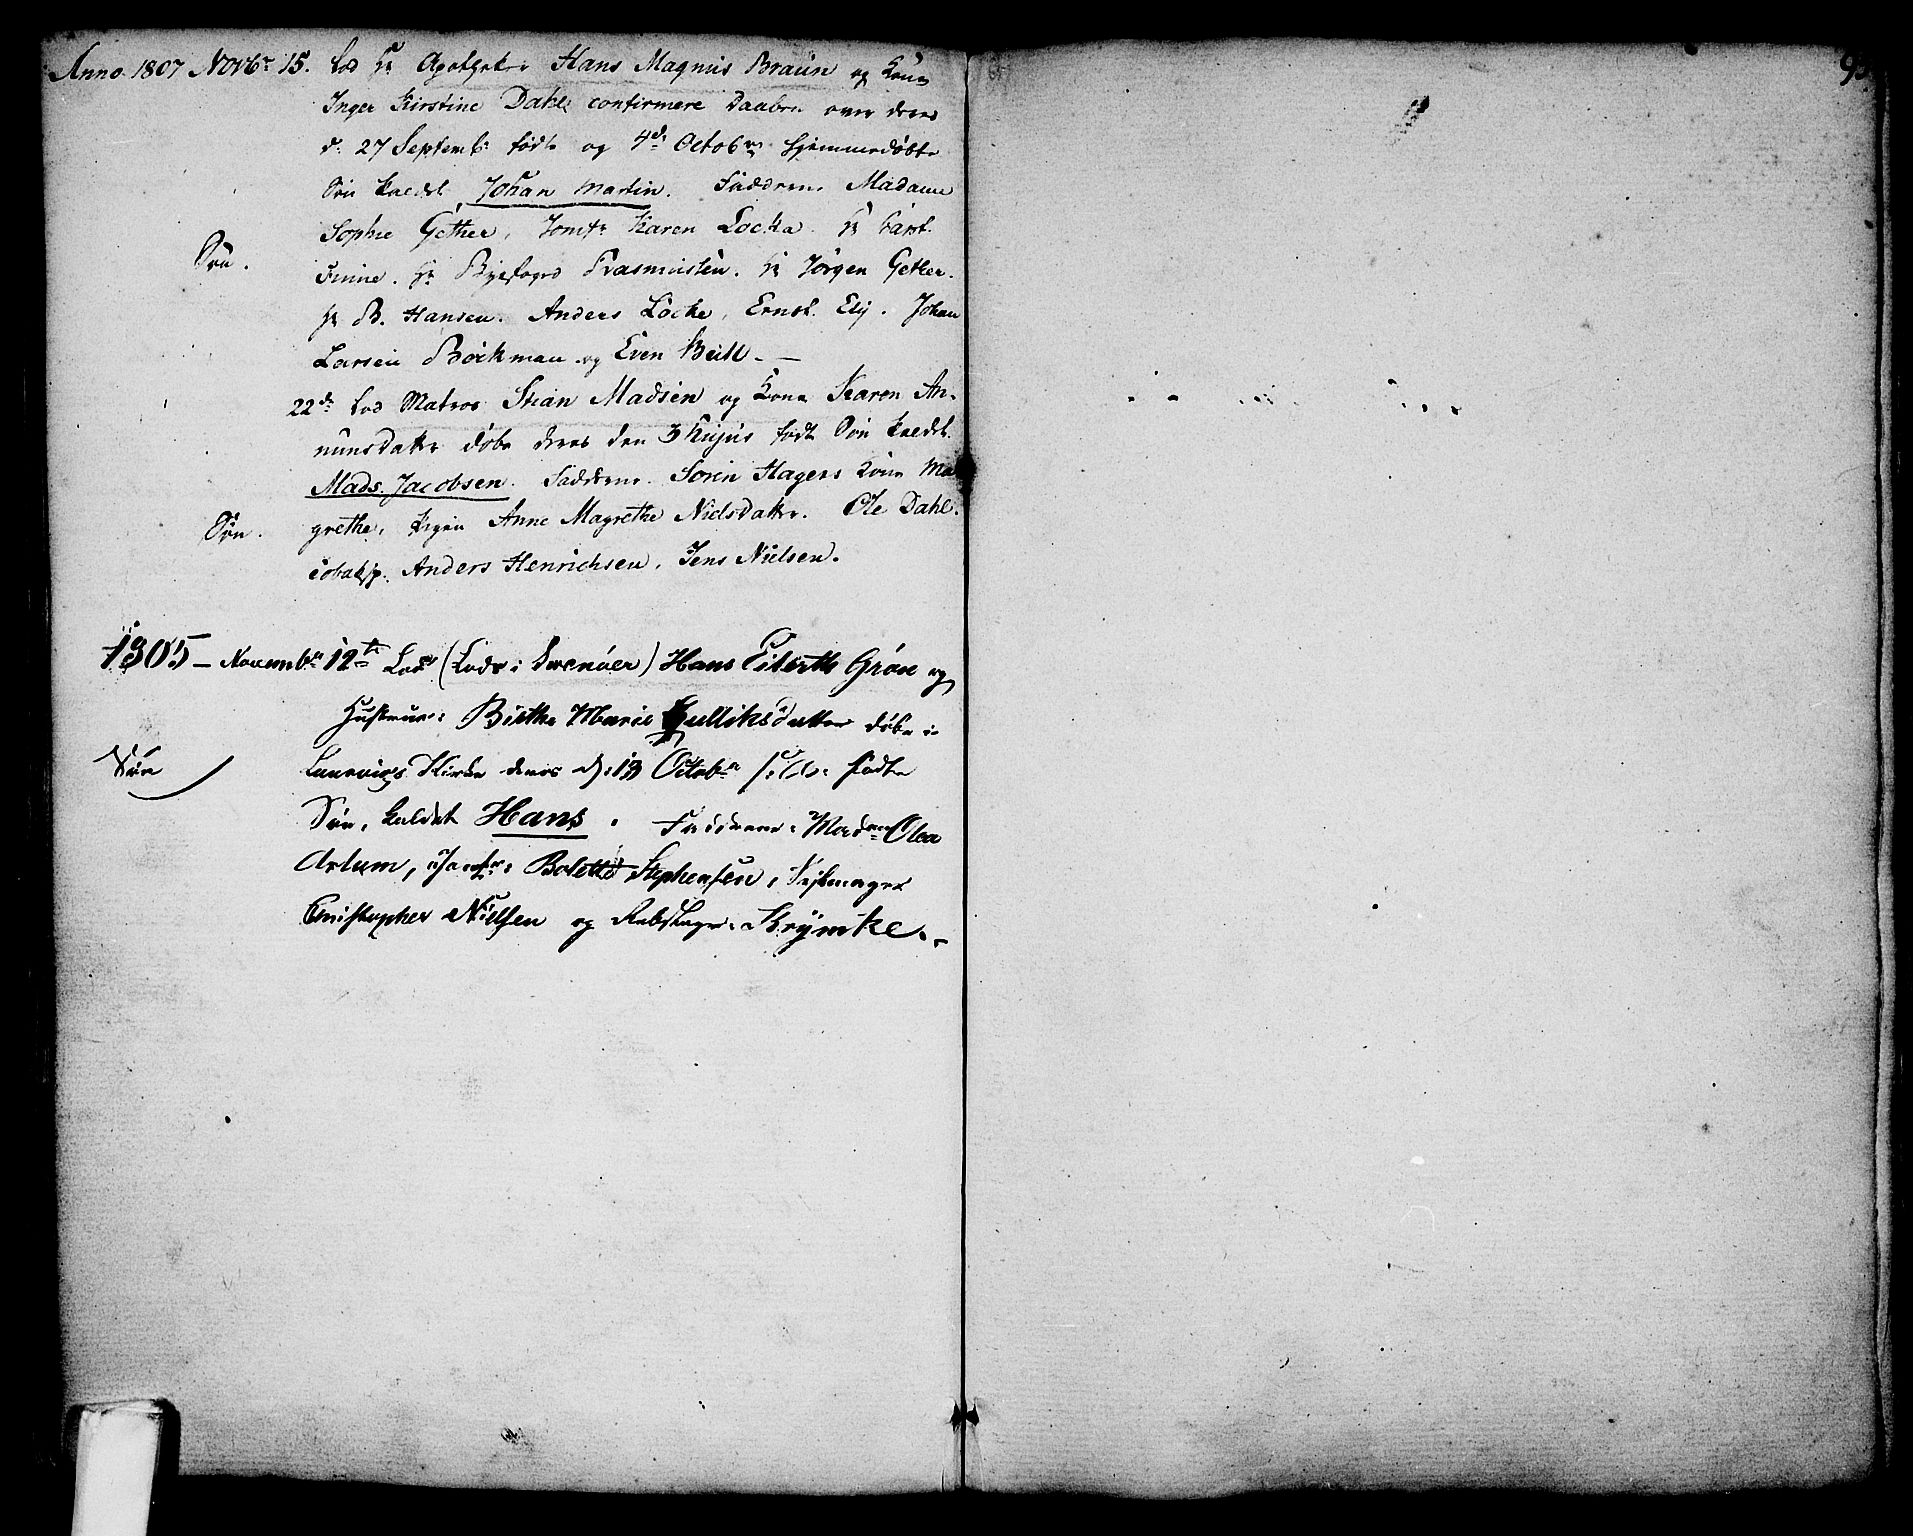 Anno 1807 Novbr 15. Lod Hr Apotheker Hans Magnus Braün og Kone
Inger Kirstine Dahl confirmere Daaben over deres
d: 27 Septembr fødte og 4de Octobr hjemmedøbte
Søn kaldet Johan Martin. Faddrene Madame
Sophie Gether, Jomfr Karen Locka. Hr
Søn.
Hr Byefoged Rasmussen. Hr Jørgen Gether.
Hr B. Hansen. Anders Locke, Ernst Ely. Johan
Larsen Böckman og Even Beill.
22de Lod Matros Stian Madsen og Kone Karen An-
nunsdatter døbe deres den 3 hujus født Søn kaldet
Mads Jacobsen. Fadderne. Soren Hagers Kone Ma
Søn. grethe, Pigen Anne Magrethe Nielsdatter. Ole Dahl.
Anders Henrichsen. Jens Nielsen.
1805 - Novembr 12te Lod (Lods i Svenøer) Hans Eilerth Grøn og
Hustrue: Birthe Marie Gulliksdatter døbe i
Søn
Laurvigs Kirke deres d: 13 Octobr fødte
Søn, kaldet Hans. Fadderne: Madme Olea
Arlum, Jomfr: Bolette Stephensen,
Christopher Nielsen og Rebslager Krymke.
9